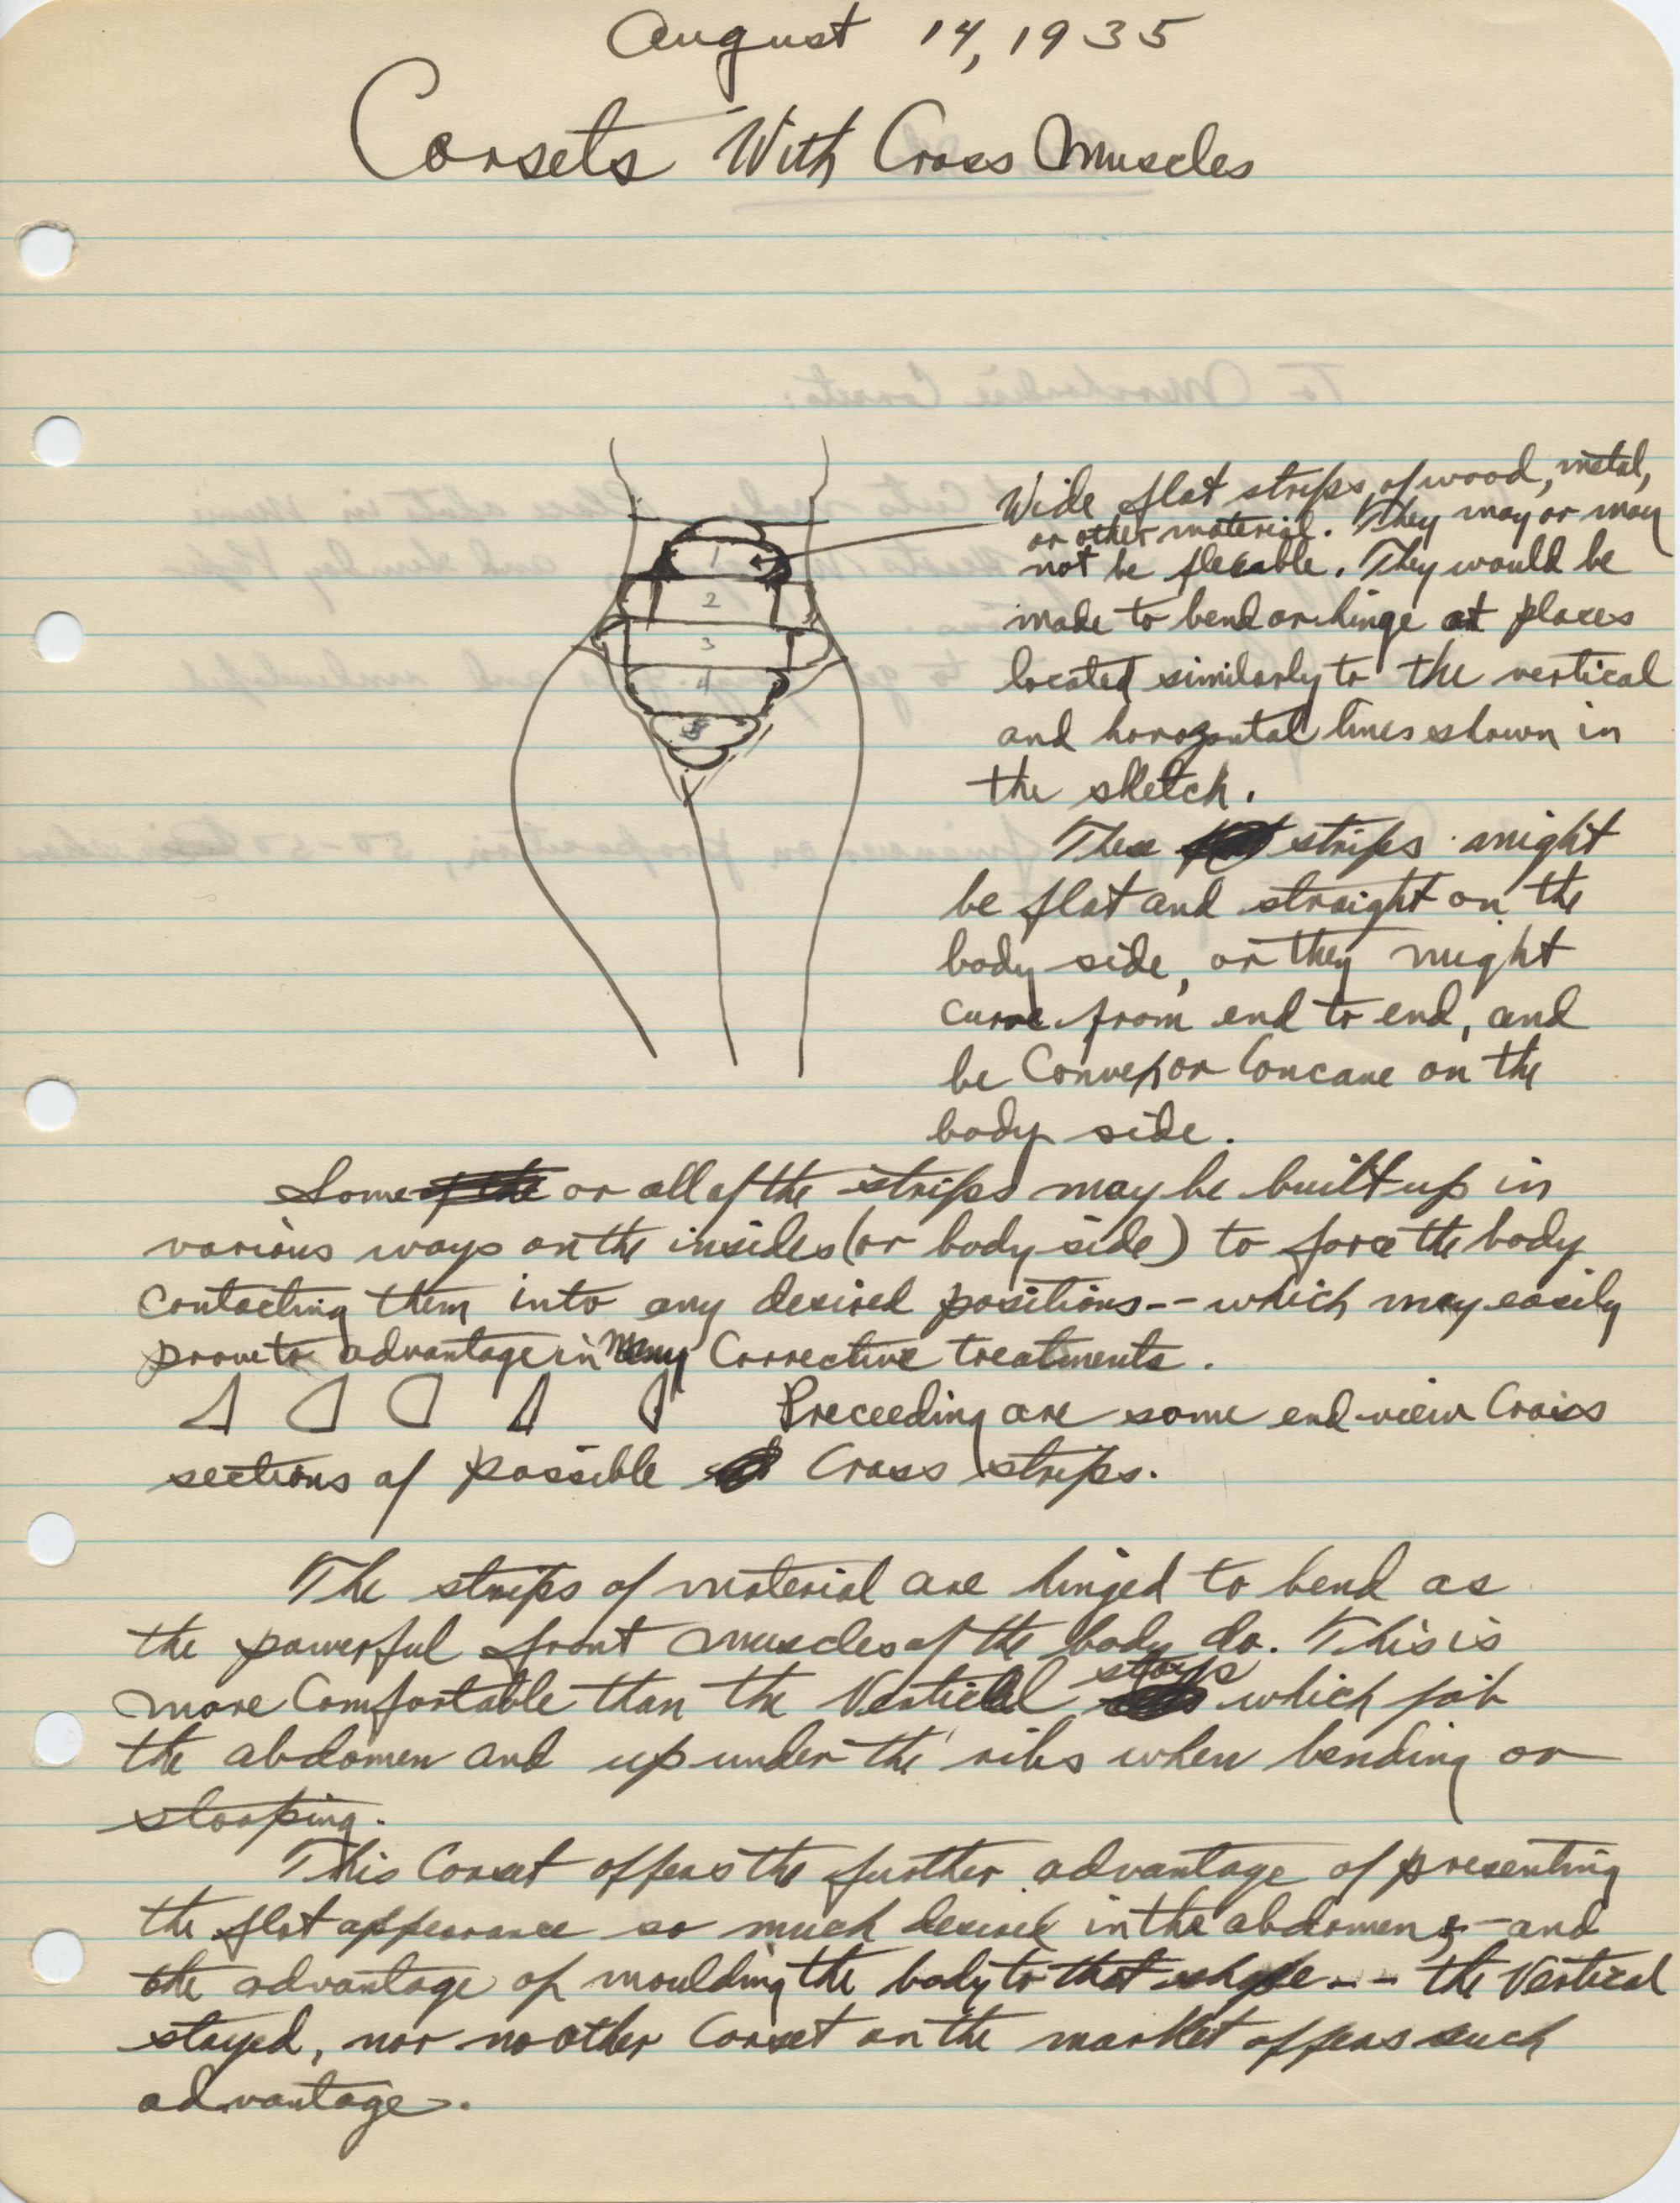 August 14, 1935
Corsets With Cross Muscles
Wide flat strips of wood, metal,
or other material. They may or may
not be flexable. They would be
made to bend or hinge at places
located similarly to the vertical
and horozontal lines shown in
the sketch.
1
2
3
4
5
These strips might
be flat and straight on the
body side, or they might
curve from end to end, and
be Convex or Concave on the
body side.
Some or all of the strips may be built up in
various ways on the insides (or body side) to force the body
contacting them into any desired positions -- which may easily
prove to advantage in many Corrective treatments.
Preceeding are some end-view Cross
sections of possible Cross strips.
The strips of material are hinged to bend as
the powerful front muscles of the body do. This is
more Comfortable than the Vertical stays which jab
the abdomen and up under the ribs when bending or
stooping.
This Corset offers the further advantage of presenting
the flat appearance so much desired in the abdomen, - and
the advantage of moulding the body to that shape -- the Vertical
stayed, nor no other Corset on the market offers such
advantage.